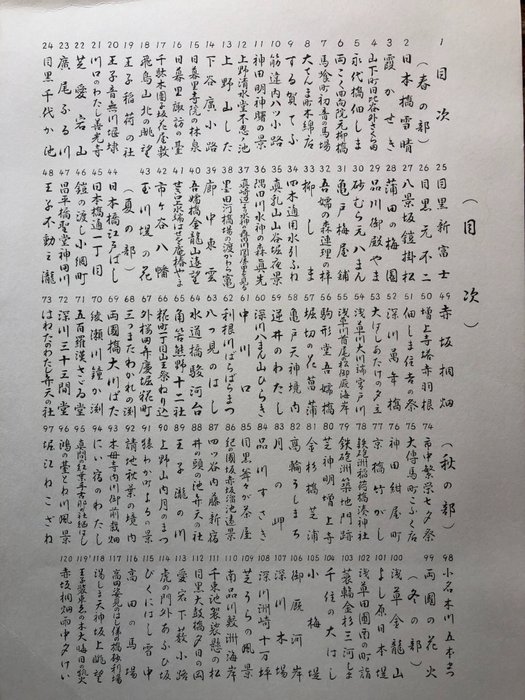 (目次)
1 目次
(春の部)
2 日本橋雪晴
3 霞かせき
4 山下町日比谷外さくら田
5 永代橋佃しま
6 両ごく回向院元柳橋
7 馬喰町初音の馬場
8 大てんま町木綿店
9 する賀てふ
10 筋違内八ツ小路
11 神田明神曙の景
12 上野清水堂不忍ノ池
13 上野山した
14 下谷廣小路
15 日暮里寺院の林泉
16 日暮里諏訪の臺
17 千駄木團子坂花屋敷
18 飛鳥山北の眺望
19 王子稲荷の社
20 王子音無川堰棣
21 川口のわたし善光寺
22 芝愛宕山
23 廣尾ふる川
24 目黒千代か池
25 目黒新富士
26 目黒元不二
27 八景坂鎧掛松
28 蒲田の梅園
29 品川御殿やま
30 砂むら元八まん
31 亀戸梅屋鋪
32 吾嬬の森連理の梓
33 柳しま
34 四ツ木通用水引ふね
35 真乳山山谷堀夜景
36 隅田川水神の森真崎
37 真崎辺より水神の森内川関屋の里を見る図
38 墨田河橋場の渡かわら竈
39 廓中東雲
40 吾妻橋金龍山遠望
41 せき口上水端はせを庵椿やま
42 市ヶ谷八幡
43 玉川堤の花
(夏の部)
44 日本橋江戸ばし
45 日本橋通一丁目
46 鎧の渡し小網町
47 昌平橋聖堂神田川
48 王子不動之瀧
49 赤坂桐畑
50 増上寺塔赤羽根
51 佃しま住吉の祭
52 深川萬年橋
53 大はしあたけの夕立
54 両国橋大川ばた
55 浅草川大川端宮戸川
56 浅草川首尾の松御厩河岸
57 駒形堂吾嬬橋
58 堀切の花菖蒲
59 亀戸天神境内
60 逆井のわたし
61 深川八まん山ひらき
62 中川口
63 利根川ばらばらまつ
64 八つ見のはし
65 水道橋駿河台
66 角筈熊野十二社
67 糀町一丁目山王祭ねり込
68 外桜田弁慶堀糀町
69 三つまたわかれの渊
70 綾瀬川鐘か渕
71 五百羅漢さざゐ堂
72 深川三十三間堂
73 はねたのわたし弁天の社
(秋の部)
74 市中繁栄七夕祭
75 大傳馬町こふく店
76 神田紺屋町
77 京橋竹がし
78 鉄炮洲稲荷橋湊神社
79 鉄炮洲築地門跡
80 芝神明増上寺
81 金杉橋芝浦
82 高輪うしまち
83 月の岬
84 品川すさき
85 目黒爺々が茶屋
86 紀の国坂赤坂溜池遠景
87 四ツ谷内藤新宿
88 井の頭の池弁天の社
89 王子瀧の川
90 上野山内月のまつ
91 猿わか町よるの景
92 請地秋葉の境内
93 木母寺内川御前栽畑
94 にい宿のわたし
95 真間の紅葉手古那の社継はし
96 鴻の臺とね川風景
97 堀江ねこざね
98 小名木川五本まつ
99 両国の花火
(冬の部)
100 浅草金龍山
101 よし原日本堤
102 浅草田圃酉の町詣
103 蓑輪金杉三河しま
104 千住の大はし
105 小梅堤
106 御厩河岸
107 深川木場
108 深川洲崎十万坪
109 芝うらの風景
110 南品川鮫洲海岸
111 千束の池袈裟懸の松
112 目黒太鼓橋夕日の岡
113 愛宕下藪小路
114 虎ノ門外あふひ坂
115 びくにはし雪中
116 高田の馬場
117 高田姿見のはし俤の橋砂利場
118 湯しま天神坂上眺望
119 王子装束ゑの木大晦日の狐火
120 赤坂桐畑雨中夕けい